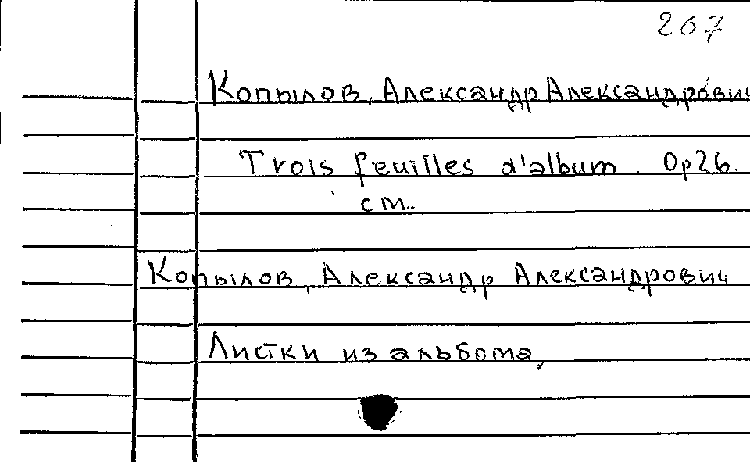 267
Копылов, Александр Александрович
Trois feuilles d'album. Op26.
см.
Копылов, Александр Александрович
Листки из альбома,